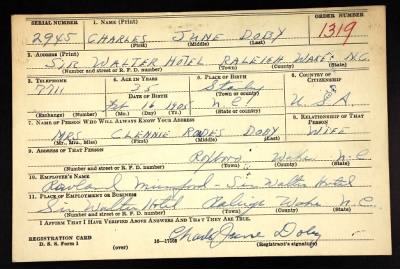 SERIAL NUMBER 1. NAME (Print) ORDER NUMBER
2945 CHARLES JUNE DOBY 1319
(First) (Middle) (Last)
2. ADDRESS (Print)
SIR WALTER HOTEL RALEIGH WAKE N.C.
(Number and street or R. F. D. number) (Town) (County) (State)
3. TELEPHONE 4. AGE IN YEARS 5. PLACE OF BIRTH 6. COUNTRY OF CITIZENSHIP
7711 35 Stanly
DATE OF BIRTH (Town or county)
Feb 16 1905 N.C. U.S.A.
(Exchange) (Number) (Mo.) (Day) (Yr.) (State or country)
7. NAME OF PERSON WHO WILL ALWAYS KNOW YOUR ADDRESS 8. RELATIONSHIP OF THAT PERSON
MRS. CLENNIE DOBY WIFE
(Mr., Mrs., Miss) (First) (Middle) (Last)
9. ADDRESS OF THAT PERSON
N.C.
(Number and street or R. F. D. number) (Town) (County) (State)
10. EMPLOYER'S NAME
Sir Walter Hotel
11. PLACE OF EMPLOYMENT OR BUSINESS
Sir Walter Hotel Raleigh Wake N.C.
(Number and street or R. F. D. number) (Town) (County) (State)
I AFFIRM THAT I HAVE VERIFIED ABOVE ANSWERS AND THAT THEY ARE TRUE.
REGISTRATION CARD
D. S. S. Form 1 (over) Charles June Doby
(Registrant's signature)